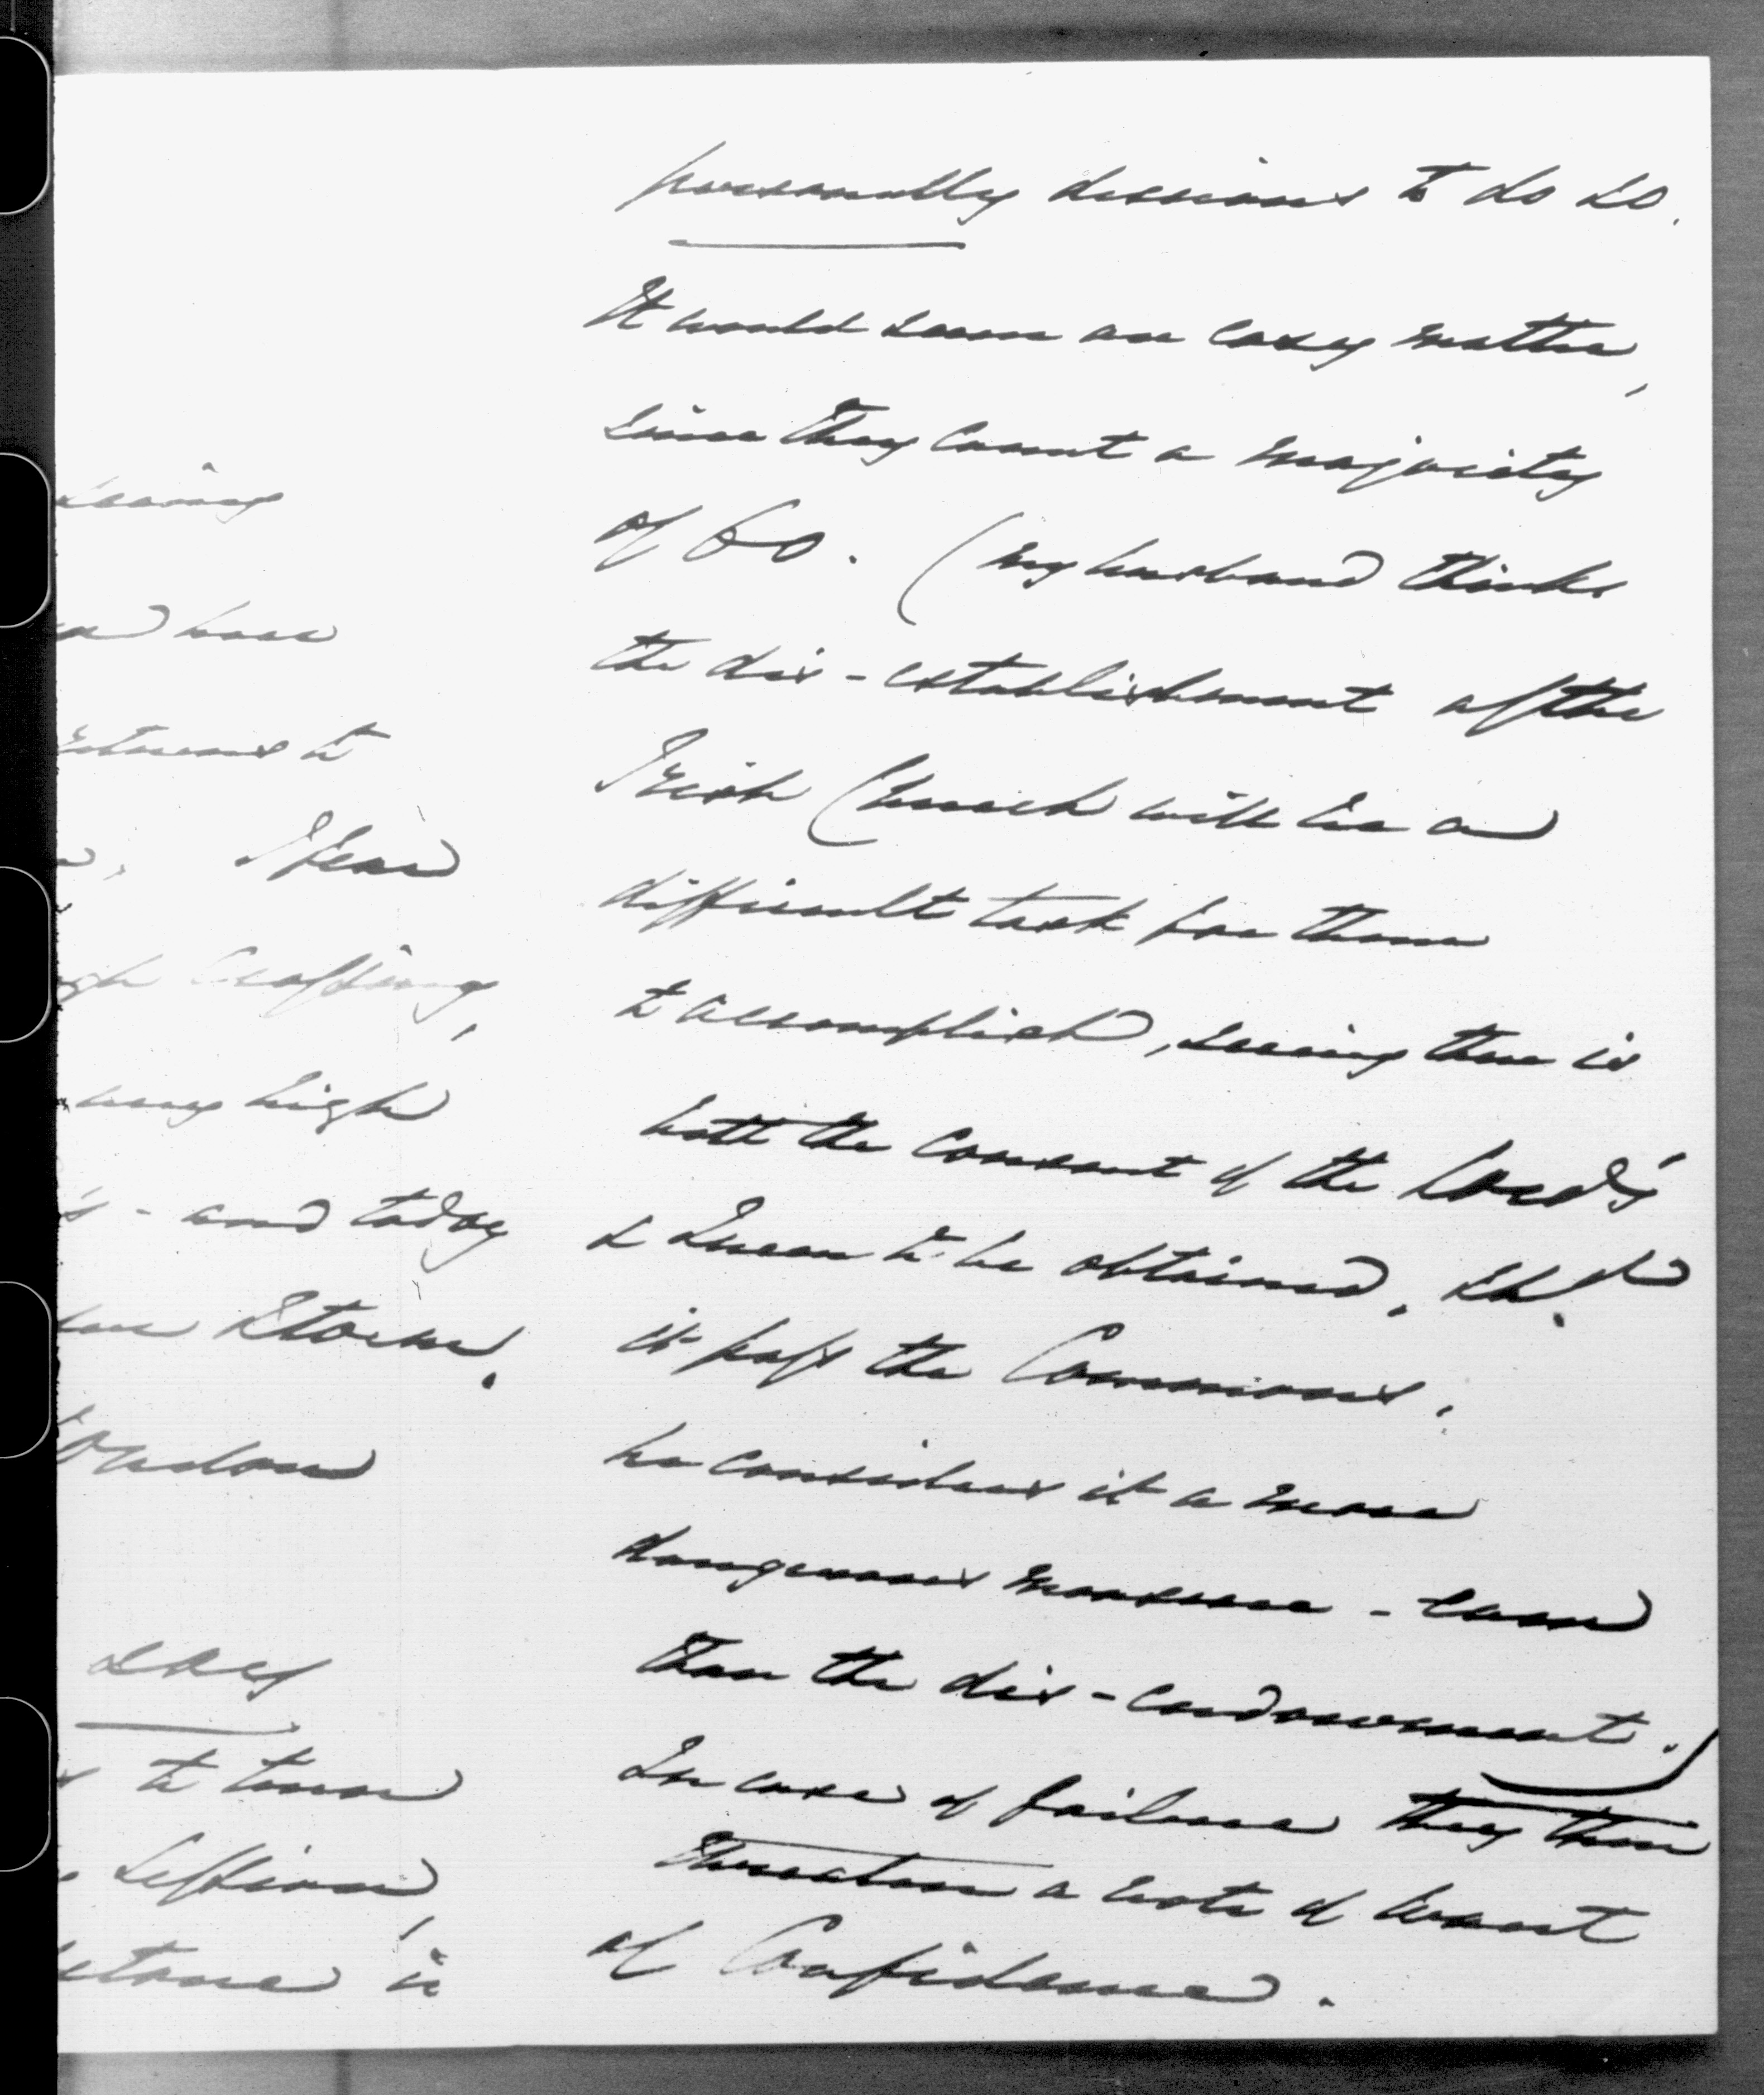 seeing
have
returns to
I fear
crossing,
very high
- and today
Storm.
London
says
to turn
Session,
is
personally desirous to do so.
It would seem an easy matter,
since they count a majority
of 60. (my husband thinks
the dis-establishment of the
Irish Church will be a
difficult task for them
to accomplish, seeing there is
both the consent of the Lord's
& Queen to be obtained, shd.
it pass the Commons.
he considers it a more
dangerous measure - even
than the dis-endowment.)
In case of failure they then
threaten a vote of want
of Confidence.